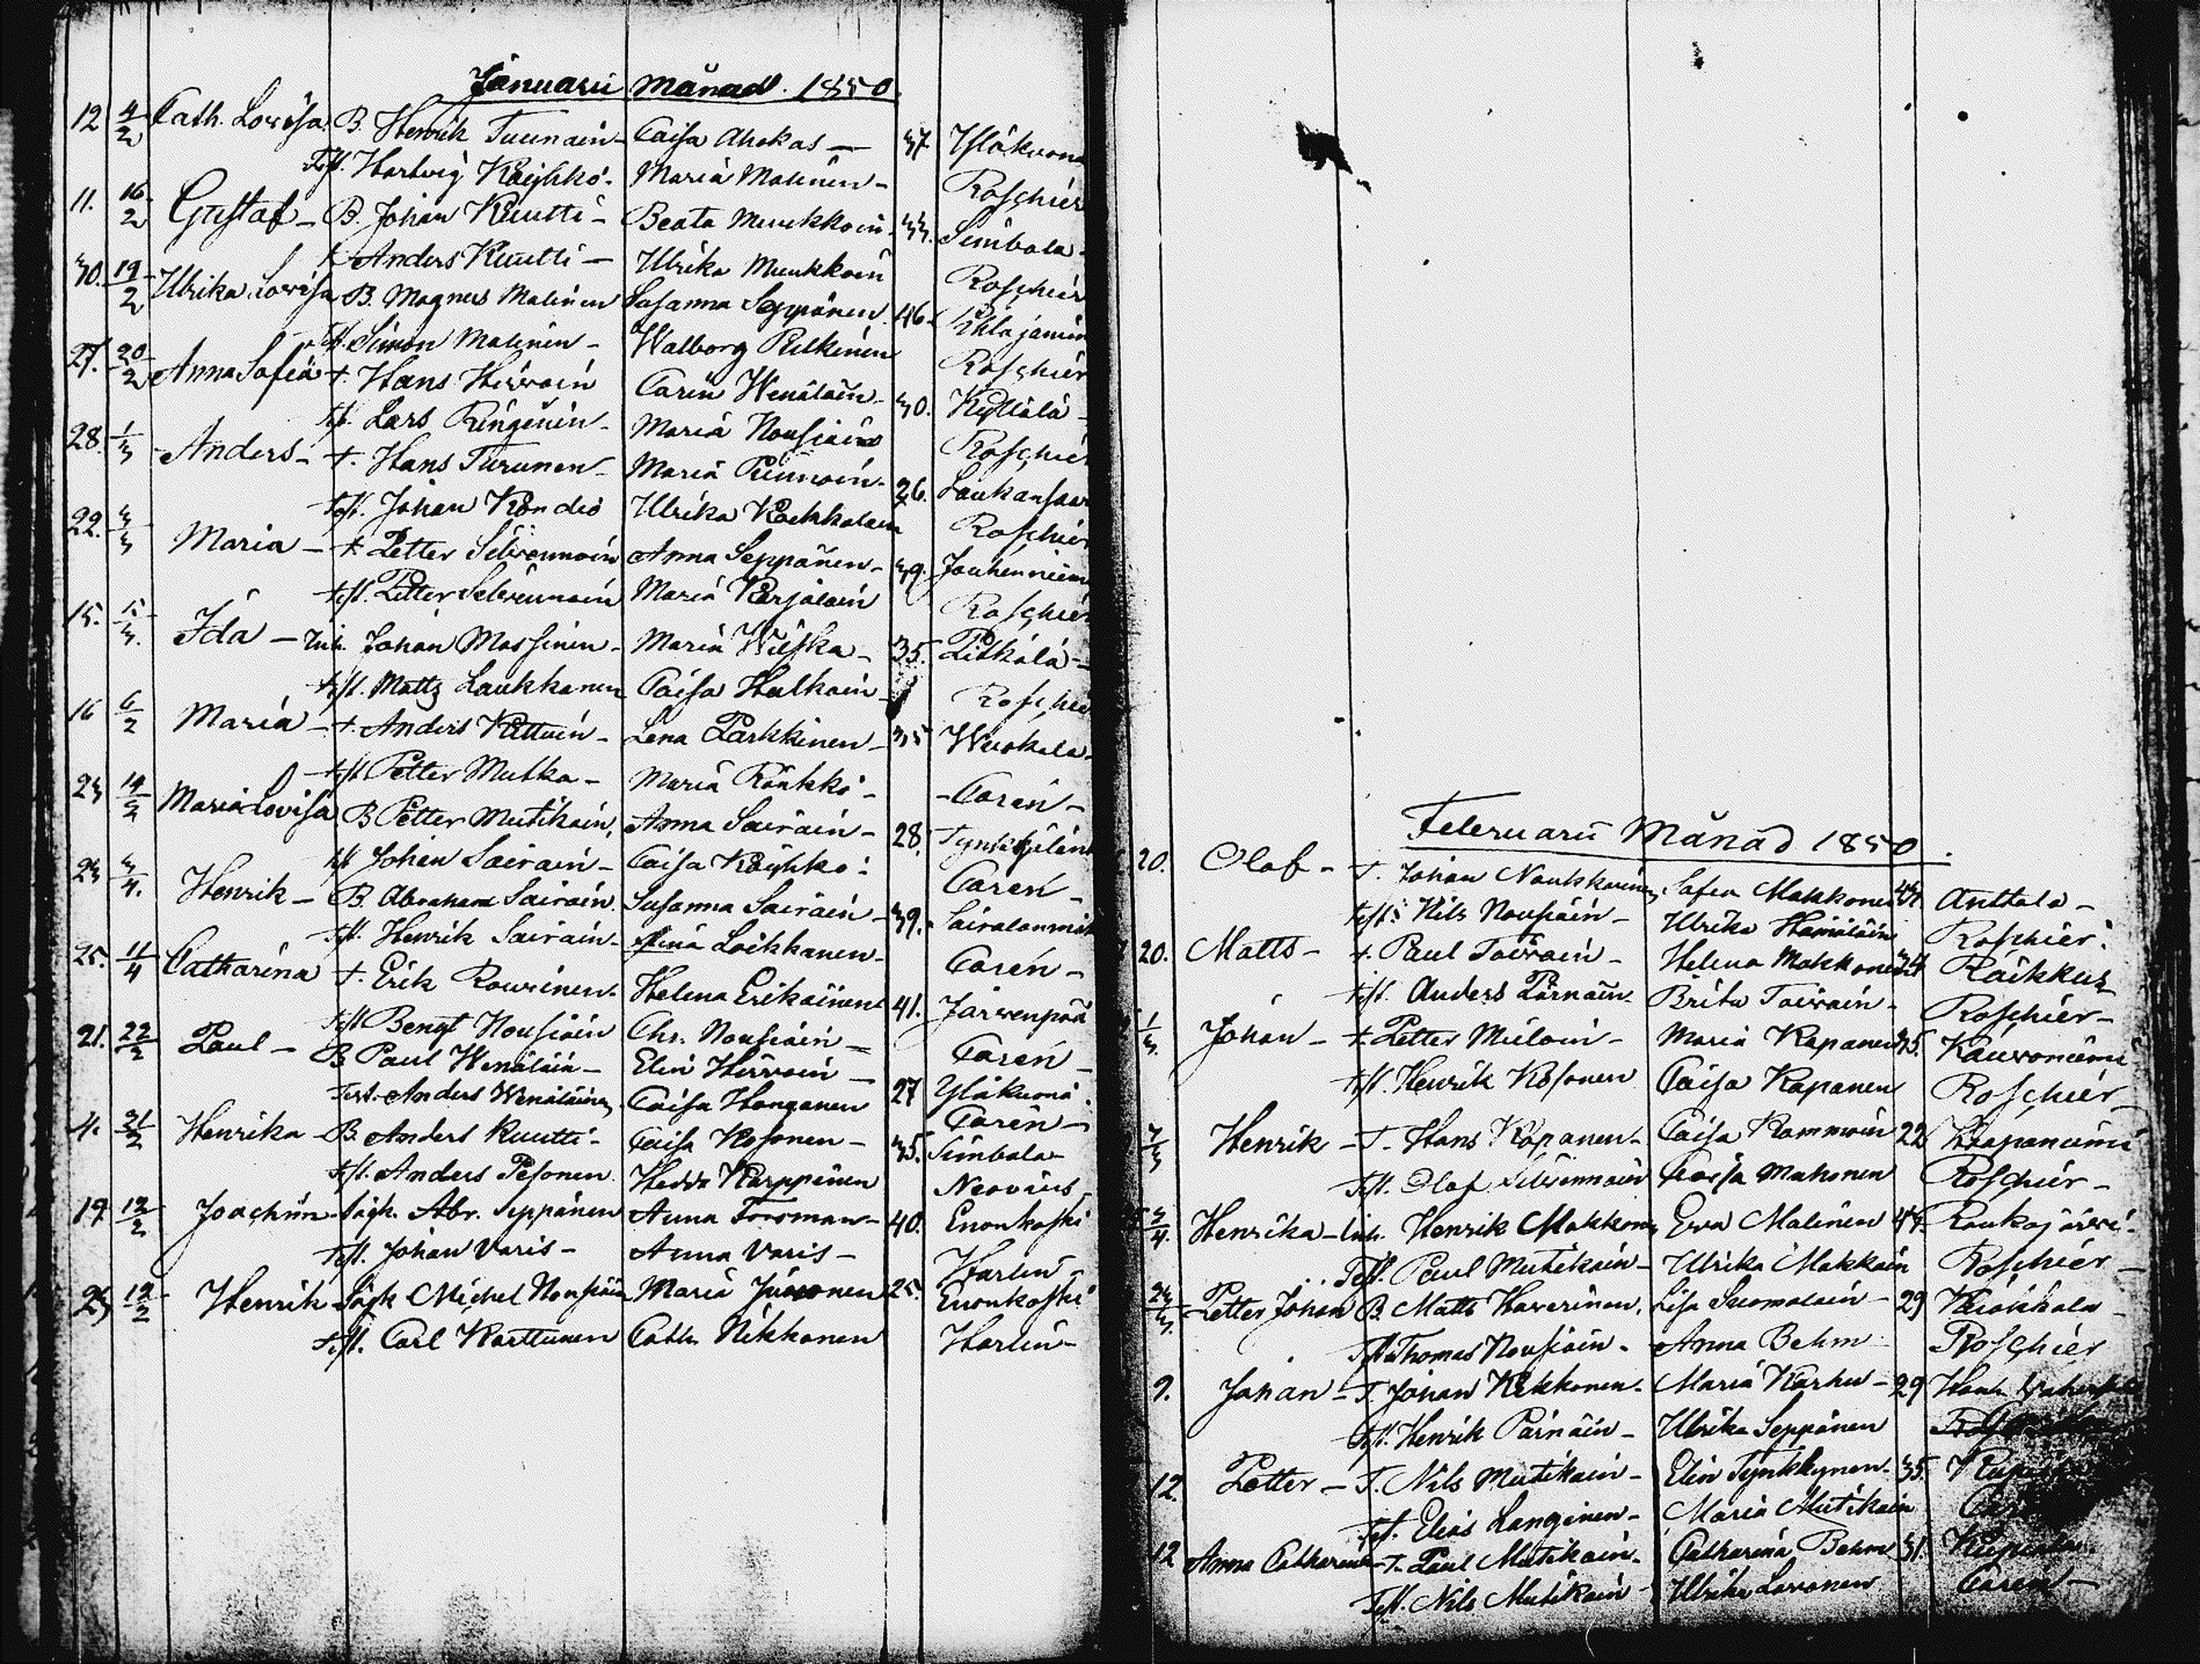 Januarii månad. 1850
12 4/2 Cath. Lovisa B. Henrik Tuunain- Caisa Ahokas — 37 Yläkuona
Test. Hartvig Käyhkö- Maria Malinen- Roschier
11. 16/2 Gustaf- B. Johan Kuutti- Beata Muukkoin- 33. Simbala-
t. Anders Kuutti- Ulrika Muukkoin Roschier
30. 19/2 Ulrika Lovisa B. Magnus Malinen Susanna Seppänen. 46. Pihlajaniem
Test. Simon Malinen- Walborg Pulkinen Roschier
27. 20/2 Anna Sofia t. Hans Hirvoin Carin Wenäläin- 30. Kyllälä-
Test. Lars Ringinen- Maria Nousiain Roschier
28. 1/3 Anders- t. Hans Turunen- Maria Puuroin- 26. Laukansaar
test. Johan Kondio Ulrika Kaikkalain Roschier
22. 3/3 Maria- t. Petter Silvennoin Anna Seppänen- 39. Jouhenniem
test. Petter Silvennoin Maria Karjalain Roschier
15. 15/3. Ida- Inh. Johan Massinen- Maria Wilska- 35. Pitkälä-
test. Matts Laukkanen Caisa Hulkoin- Roschier
16 6/2 Maria- t. Anders Kettuin- Lena Parkkinen- 35 Wuokala-
test Petter Mutka- Maria Rönkkö- -Caren-
23 14/2 Maria Lovisa B Petter Mutikain, Anna Sairain- 28. Tynkkylänk
tst Johan Sairain- Caisa Käyhkö: Caren-
23 3/4. Henrik- B. Abraham Sairain. Susanna Sairain- 39. Sairalanmäk
Test. Henrik Sairain- Lena Loikkanen- Caren-
25. 11/4 Catharina t. Erik Rouvinen. Helena Erikäinen 41. Järvenpää
Test Bengt Nousiain Chr. Nousiain- Caren-
21. 22/2 Paul- B Paul Wenäläin- Elin Hirvoin- 27 Yläkuona.
Test. Anders Wenäläinen Caisa Hanganen Caren-
4. 31/2 Henrika- B. Anders Kuutti- Caisa Kosonen- 35. Simbala-
test. Anders Pesonen. Hedda Karppinen Neovius
19 12/2 Joachim- Sågk. Abr. Seppänen Anna Forsman- 40. Enonkoski
test. Johan Varis- Anna Varis- Harlin-
23 12/2 Henrik- Sågk Michel Nousiain Maria Juvonen 25. Enonkoski
test. Carl Karttunen Cath. Nikkanen Harlin-
Februarii Månad 1850.
20. Olof- T. Johan Naukkarinen Sofia Makkonen 43. Anttola-
test: Nils Nousiain- Ulrika Hämäläin Roschier.
20. Matts- t. Paul Toivain- Helena Makkonen 34 Räikkus
test. Anders Pärnäin- Brita Toivain- Roschier-
1/3. Johan- t. Petter Miloin- Maria Kapanen 35. Kauvoniemi
test. Henrik Kosonen Caisa Kapanen Roschier-
7/3 Henrik- T. Hans Kapanen- Caisa Rommoin 22 Kaapaniemi
Test. Olof Silvennoin Caisa Muhonen Roschier-
3/4. Henrika- Inh. Henrik Makkonen Eva Malinen 44. Raukojärvi.
Test. Paul Mutikain- Ulrika Makkoin Roschier-
23/3. Petter Johan B. Matts Haverinen, Lisa Suomalain- 29 Kuokkala-
Test Thomas Nousiain- Anna Behm Roschier
9. Johan- T. Johan Kekkonen- Maria Karhu- 29
Test. Henrik Pärnäin- Ulrika Seppänen
12. Petter- T. Nils Mutikain- Elin Tynkkynen- 35.
Test. Elias Langinen- Maria Mutikain
12 Anna Catharina- t. Paul Mutikain- Catharina Behm 31.
Test. Nils Mutikain- Ulrika Lavonen Caren-